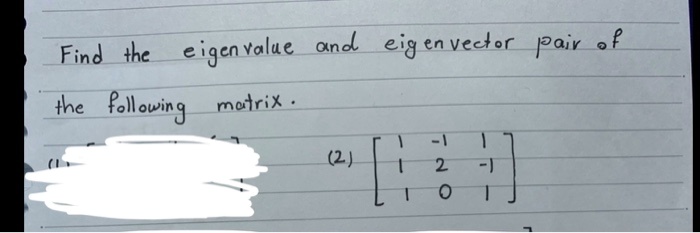 Find the eigenvalue and eigenvector pair of
the following matrix.
(2) [ 1 -1 1
1 2 -1
1 0 1 ]